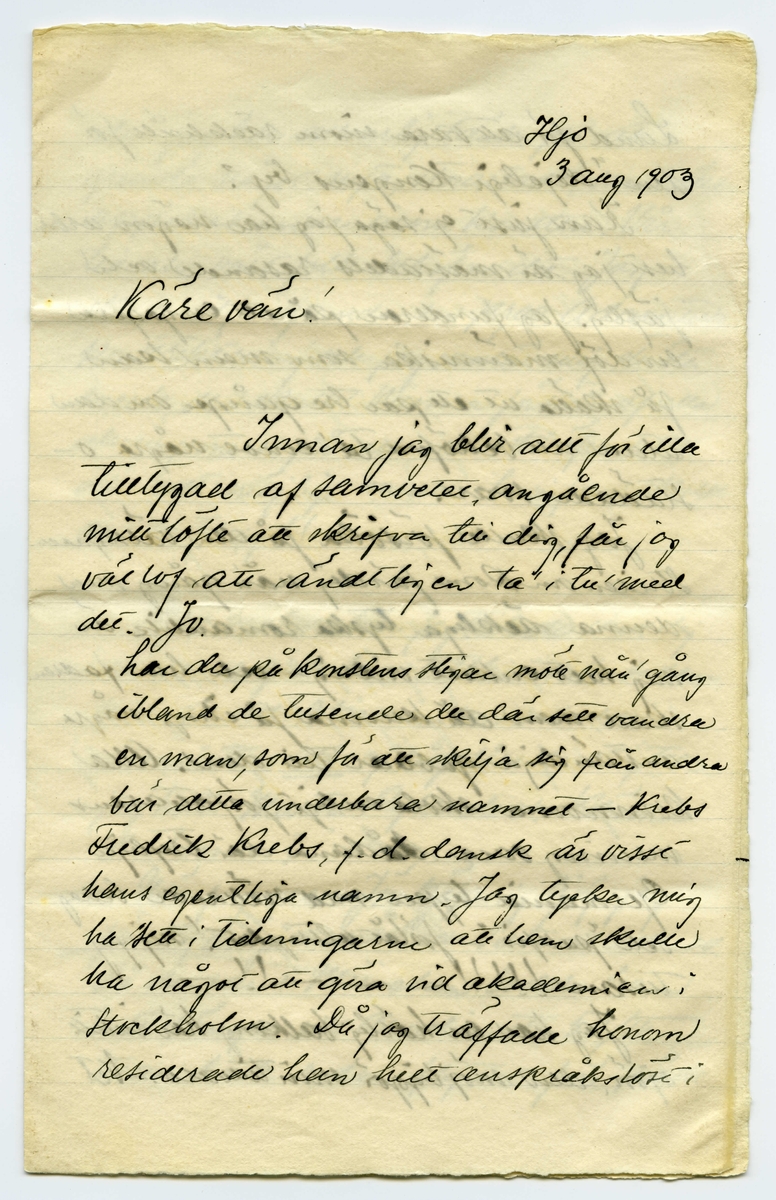 Hjo
3 aug 1903
Käre vän!
Innan jag blir allt för illa
tilltygad af samvetet, angående
mitt löfte att skrifva till dig, får jag
väl lof att ändtligen ta' i tu' med
det. Jo.
har du på konstens stigar mött nån' gång
ibland de tusende du där sett vandra
en man, som för att skilja sig från andra
bär detta underbara namnet — Krebs
Fredrik Krebs, f. d. dansk är visst
hans egentliga namn. Jag tycker mig
ha sett i tidningarne att hem skulle
ha något att göra vid akademien i
Stockholm. Då jag träffade honom
residerade han helt anspråkslöst i